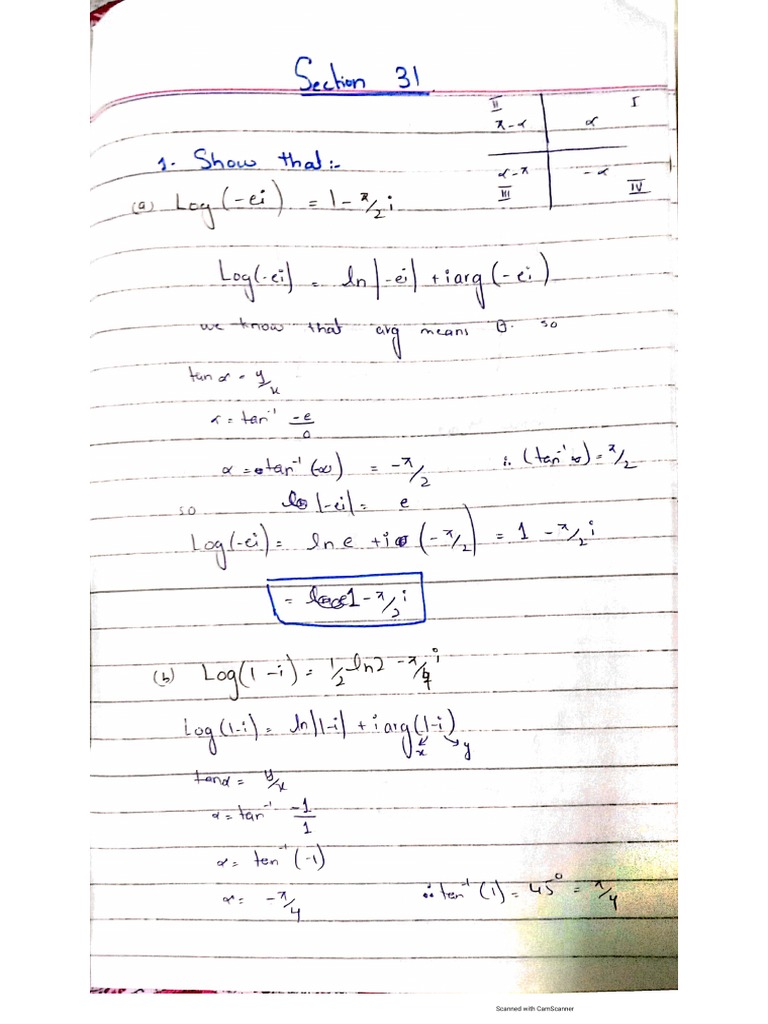 Section 31
II
I
π-α
α
1. Show that:-
α-π
-α
III
IV
(a) Log(-ei) = 1 - π/2 i
Log(-ei) = ln|-ei| + i arg(-ei)
we know that arg means θ. so
tan α = y/x
α = tan⁻¹ -e/0
α = tan⁻¹(-∞) = -π/2 ∵ (tan⁻¹ ∞) = π/2
so |-ei| = e
Log(-ei) = ln e + i (-π/2) = 1 - π/2 i
= 1 - π/2 i
(b) Log(1-i) = 1/2 ln2 - π/4 i
Log(1-i) = ln|1-i| + i arg(1-i)
x y
tanα = y/x
α = tan⁻¹ -1/1
α = ten⁻¹ (-1)
α = -π/4 ∵ ten⁻¹(1) = 45° = π/4
Scanned with CamScanner